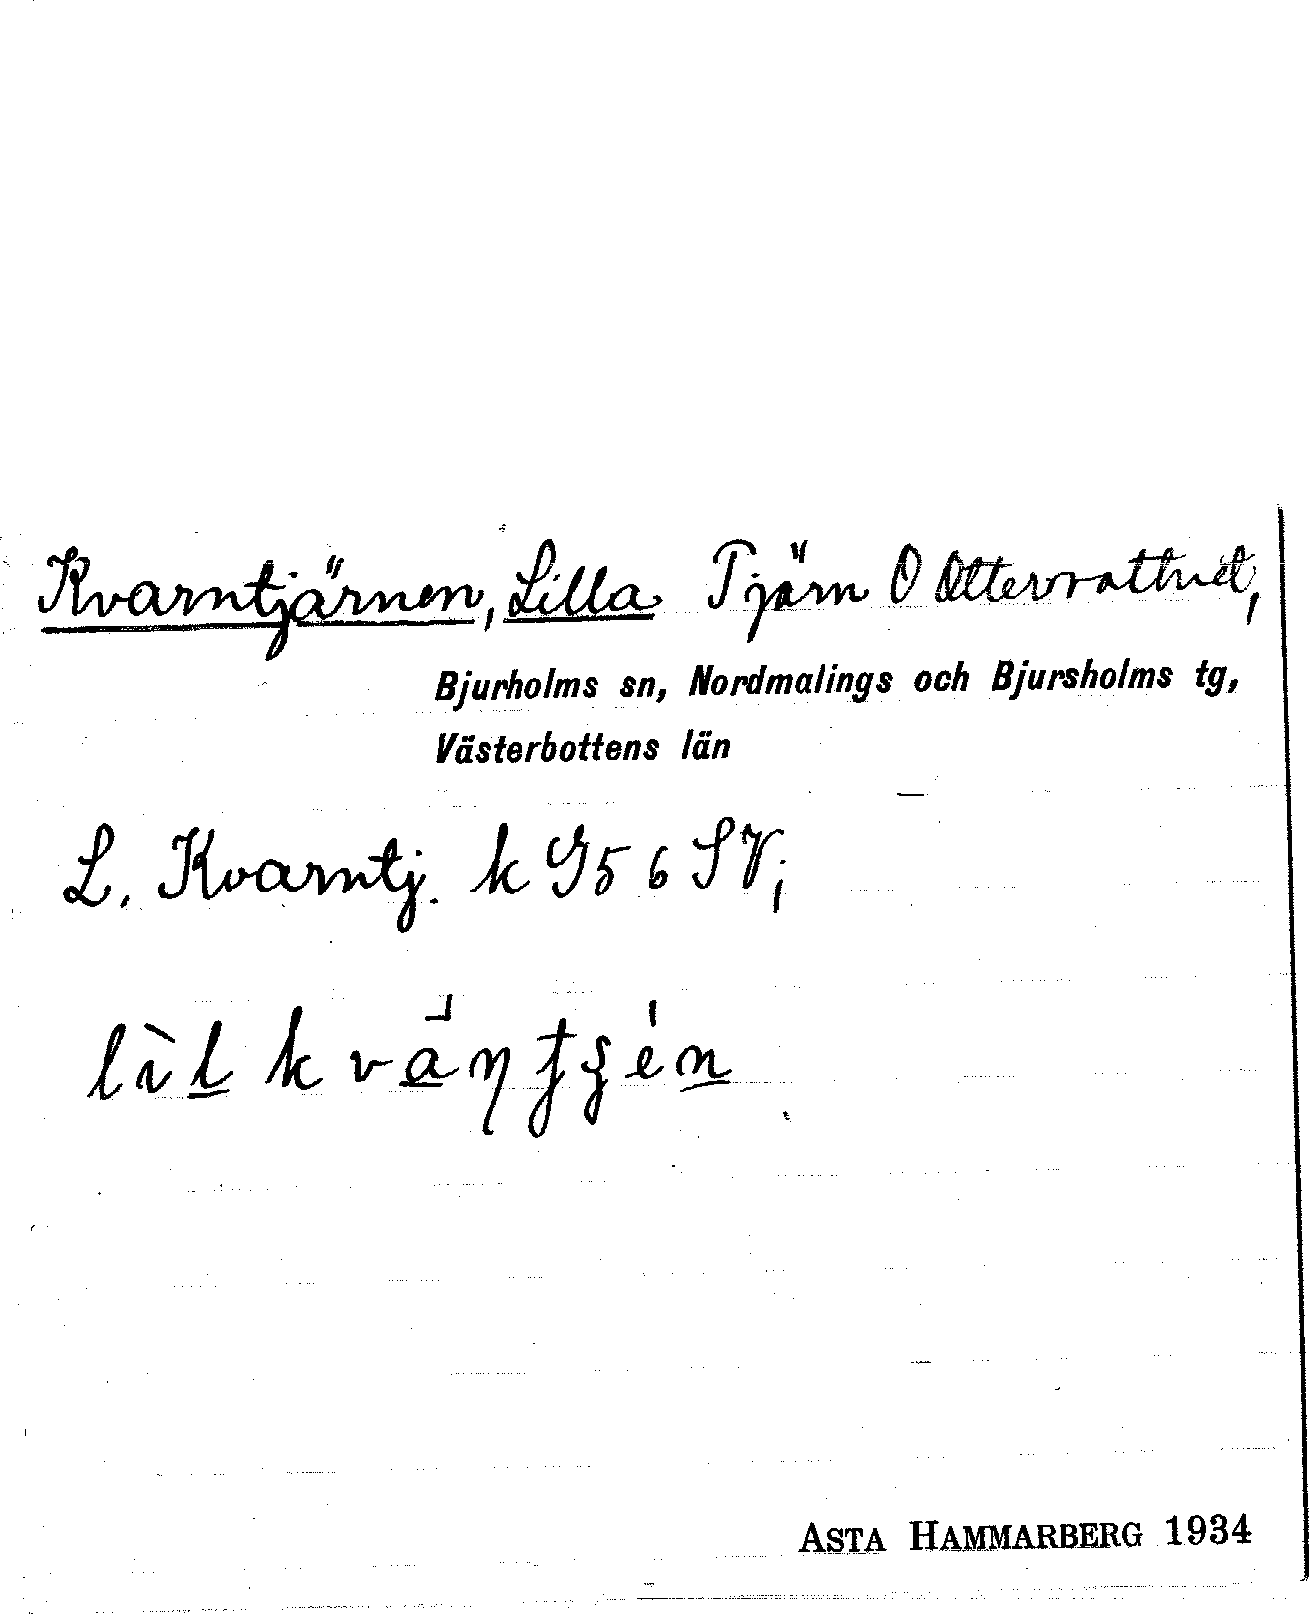 Kvarntjärnen, Lilla Tjärn O Ottervattnet,
Bjurholms sn, Nordmalings och Bjursholms tg,
Västerbottens län
L. Kvarntj. k G56 SV;
lìl kva̲ņ
ASTA HAMMARBERG 1934